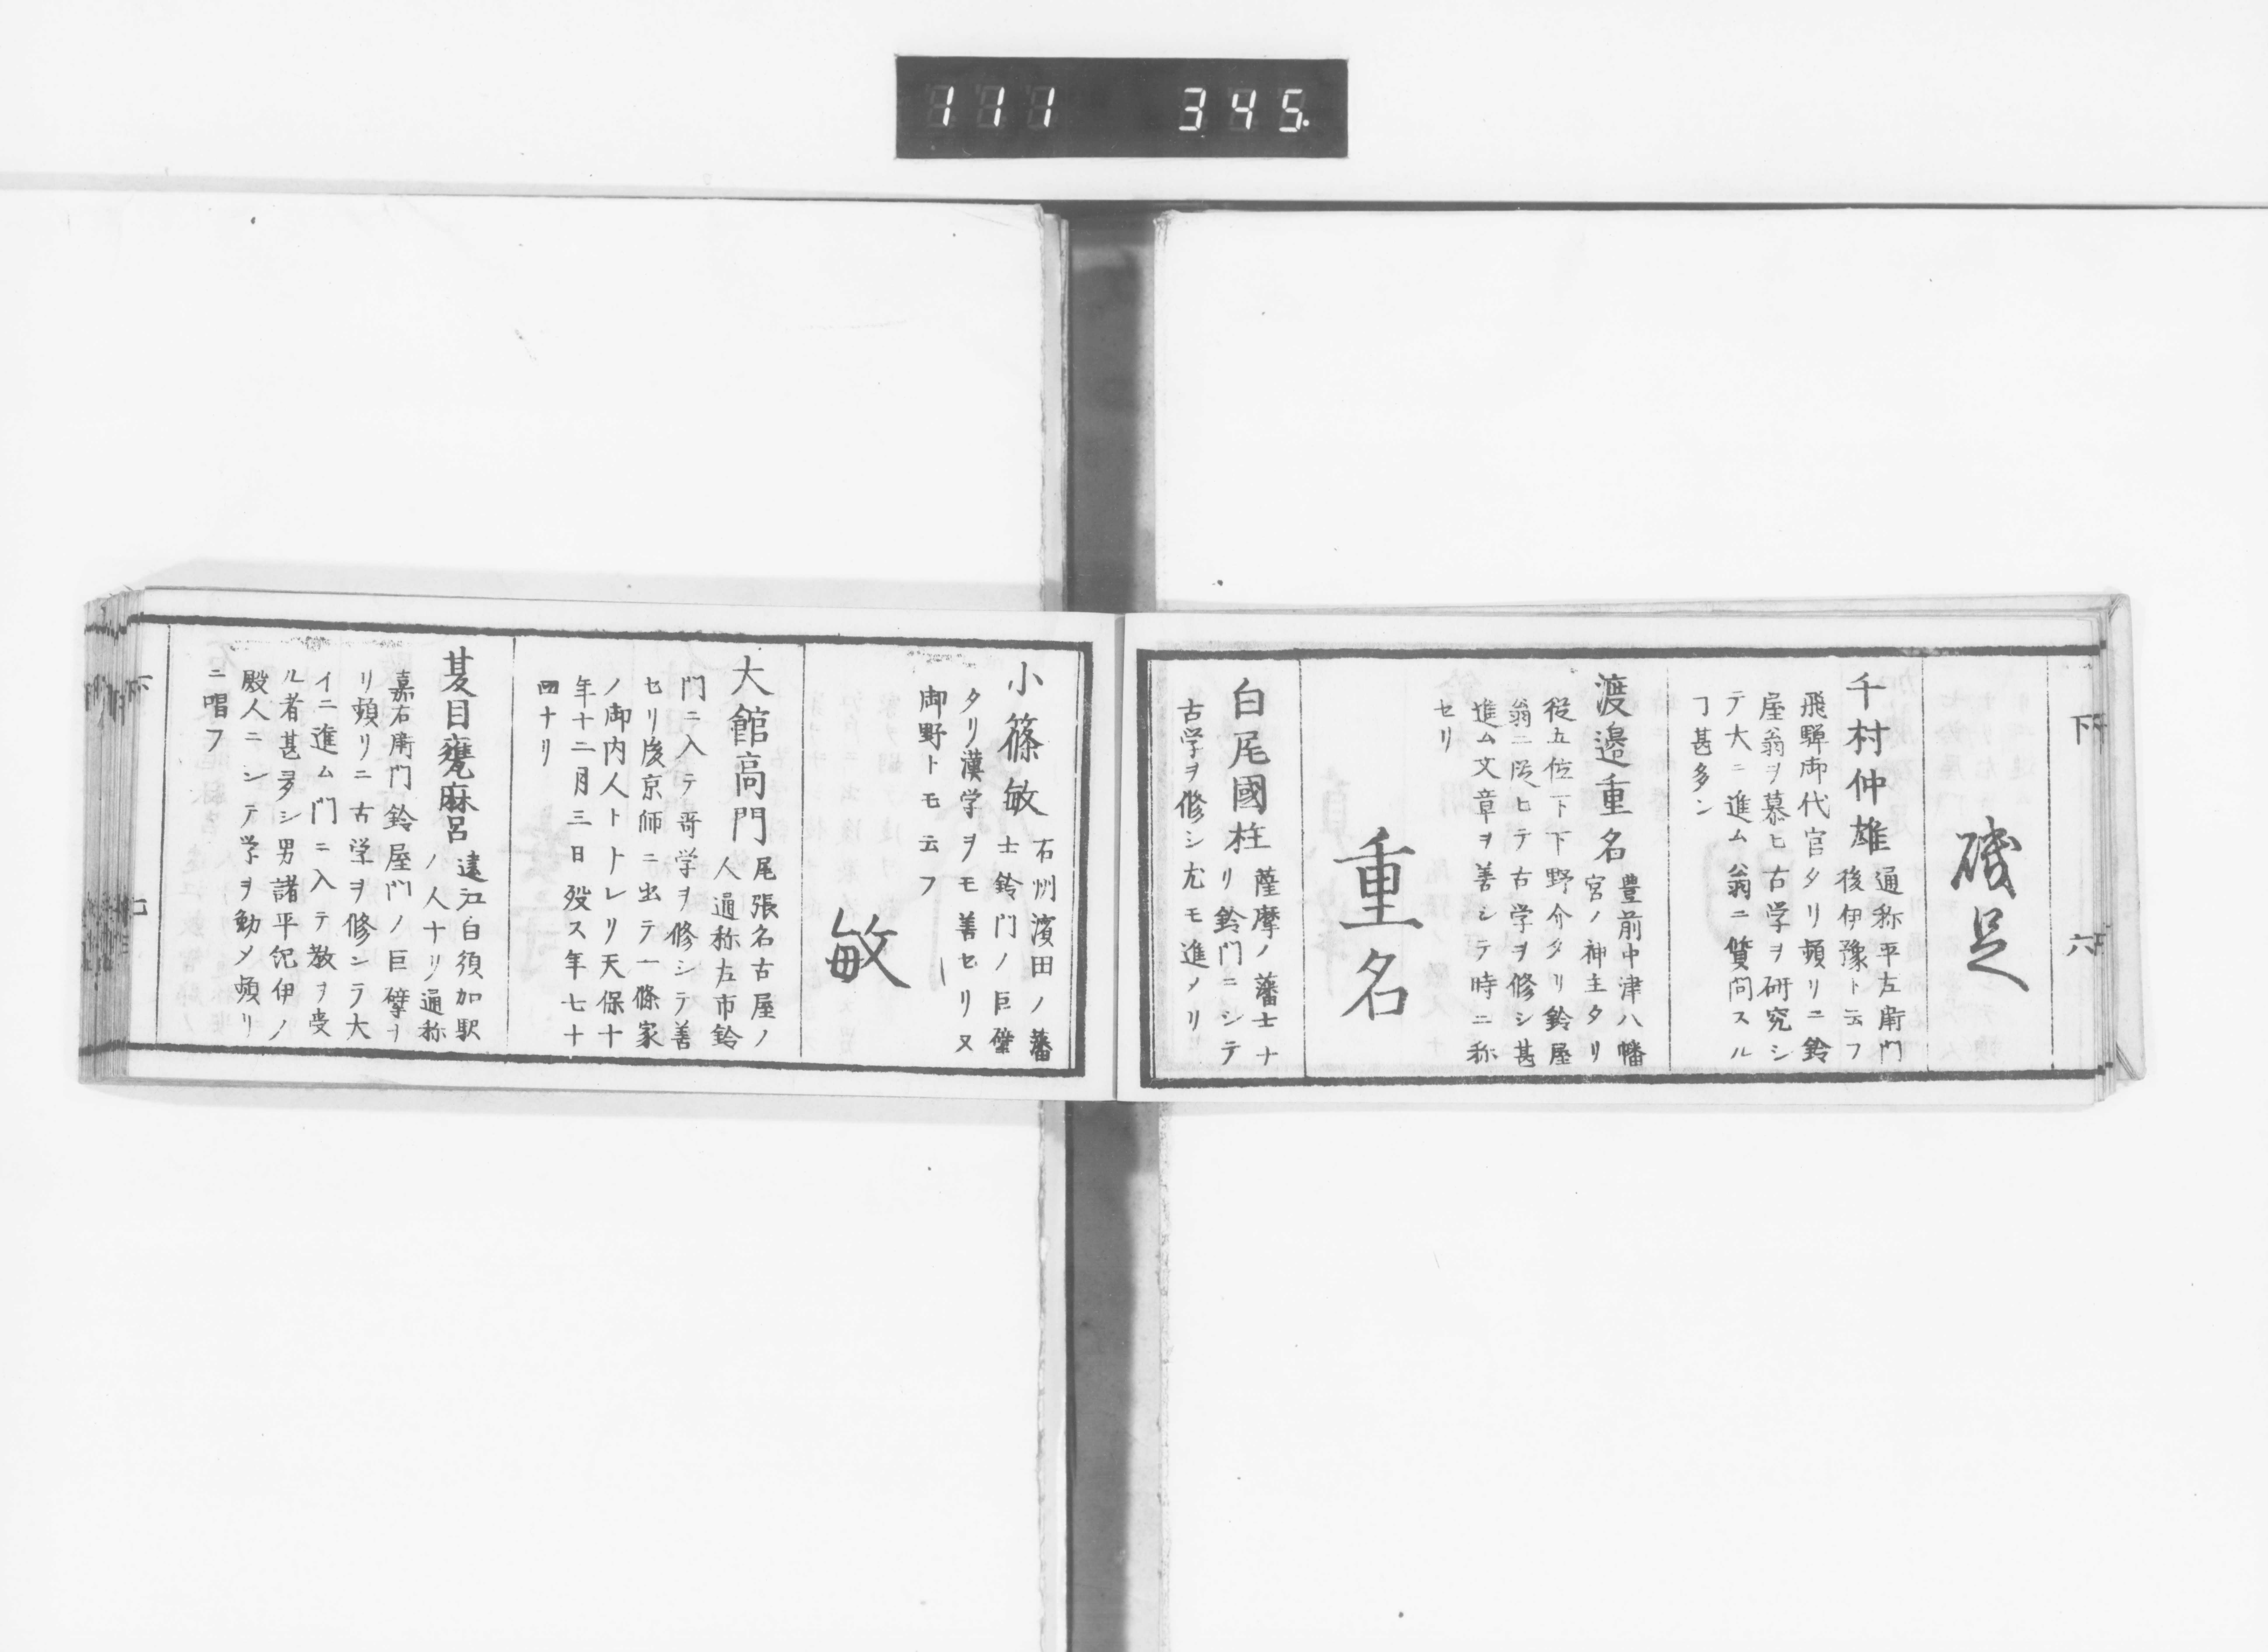 111 345
下
六
磯足
千村仲雄
通称平左衛門
後伊豫ト云フ
飛騨御代官タリ頻リニ鈴
屋翁ヲ慕ヒ古学ヲ研究シ
テ大ニ進ム翁ニ質問スル
ヿ甚多シ
渡邉重名
豊前中津八幡
宮ノ神主タリ
従五位下下野介タリ鈴屋
翁ニ従ヒテ古学ヲ修シ甚
進ム文章ヲ善シテ時ニ称
セリ
重名
白尾國柱
薩摩ノ藩士ナ
リ鈴門ニシテ
古学ヲ修シ尤モ進メリ
小篠敏
石州濱田ノ藩
士鈴門ノ巨擘
タリ漢学ヲモ善セリ又
御野トモ云フ
敏
大館高門
尾張名古屋ノ
人通称左市鈴
門ニ入テ哥学ヲ修シテ善
セリ後京師ニ出テ一條家
ノ御内人トトレリ天保十
年十二月三日歿ス年七十
四ナリ
夏目甕麻呂
遠江白須加駅
ノ人ナリ通称
嘉右衛門鈴屋門ノ巨擘ナ
リ頻リニ古学ヲ修シテ大
イニ進ム門ニ入テ教ヲ受
ル者甚多シ男諸平紀伊ノ
殿人ニシテ学ヲ勤メ頻リ
ニ唱フ
下
七